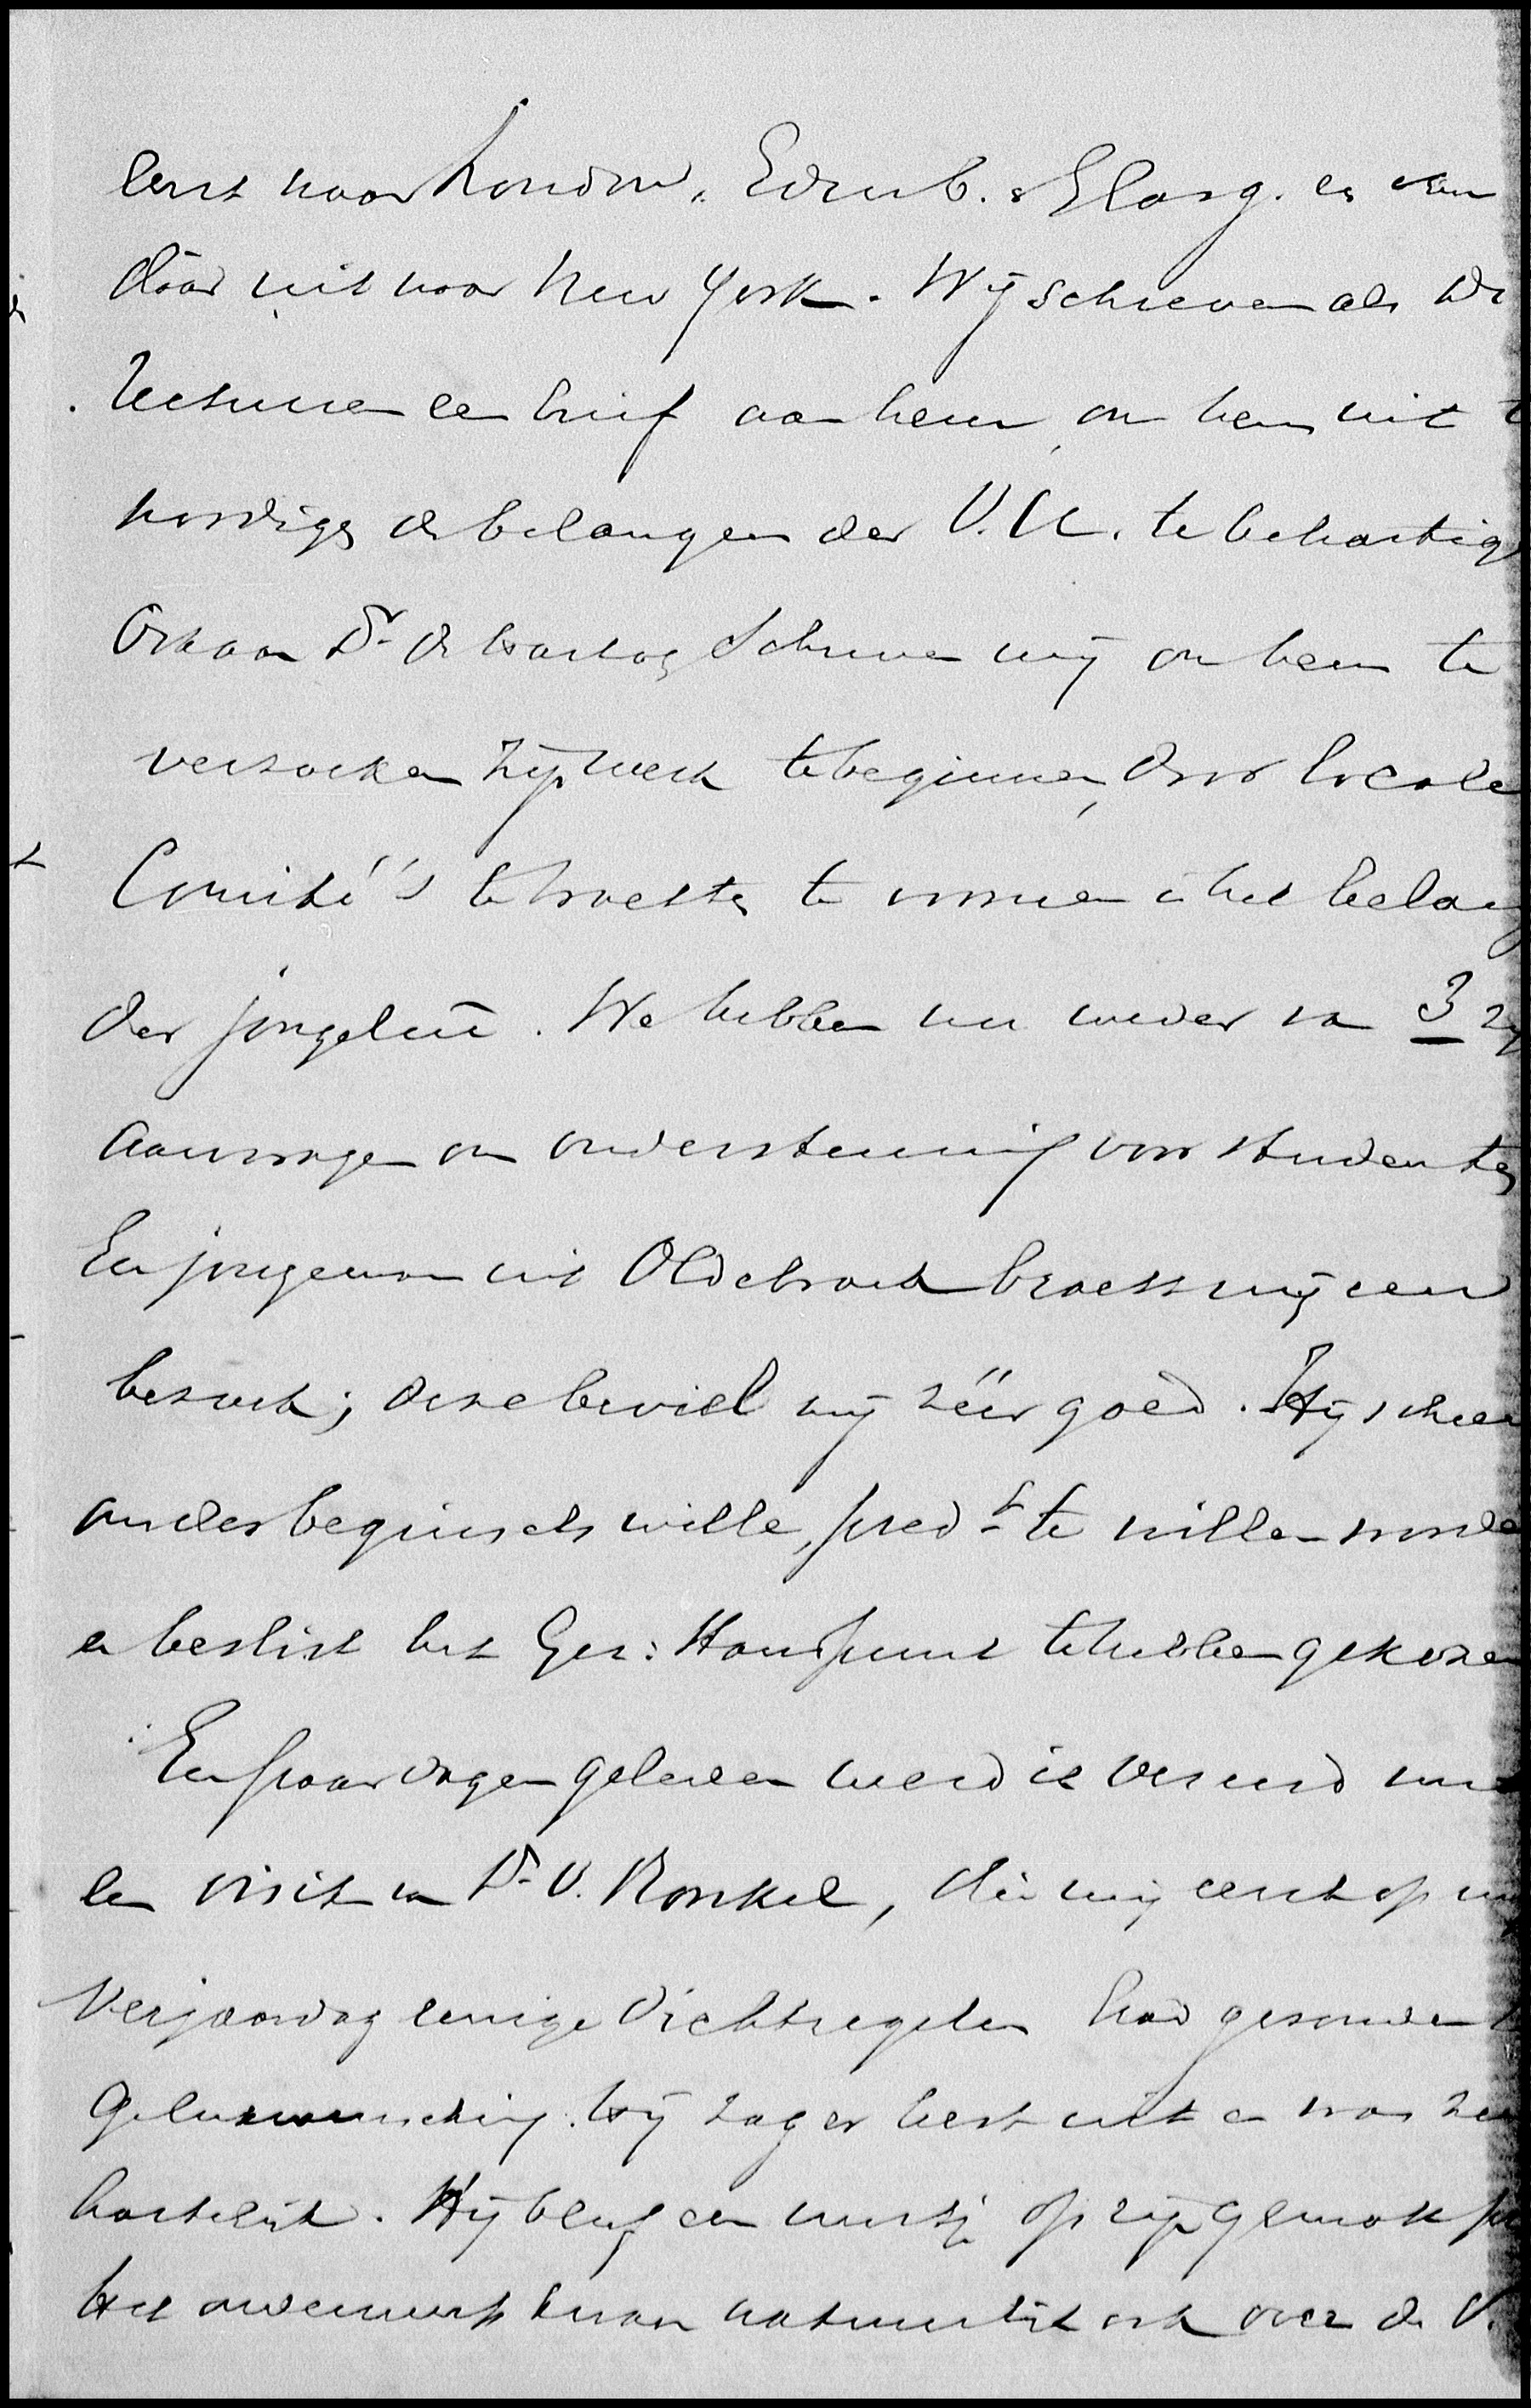 eerst naar London, Edinb. & Glasg. en van
daar uit naar New York. Wij schreven als Di
recteuren een brief aan hem, om hem uit t
noodigen de belangen der V.U. te behartig
Ook aan Dr de Hartog schreven wij om hem te
verzoeken zijn werk te beginnen, door locale
Comité's te trachten te vormen in het belang
der jongelui. We hebben nu weder van 3 zij
aanvragen om ondersteuning voor studenten
Een jongeman uit Oldebroek bracht mij een
bezoek; deze beviel mij zéér goed. Hij scheen
om des beginsels wille, predt te willen worde
en beslist het Ger: standpunt te hebben gekozen
Een paar dagen geleden werd ik vereerd me
een visite van Dr v. Ronkel, die mij eerst op mij
Verjaardag eenige dichtregelen had gezonden t
Gelukwensching. Hij zag er best uit en was ze
hartelijk. Hij bleef een uurtje op zijn gemak pr
Het onderwerp kwam natuurlijk ook over de V.